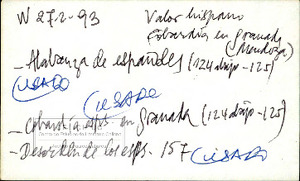 W 272-93
Valor hispano
Cobardía en Granada
(Mendoza)
- Alabanza de españoles (124 abajo - 125)
(USADO
(USADO
- Cobardía esps. en Granada (124 abajo - 125)
- Desorden de los esps. 157 (USADO